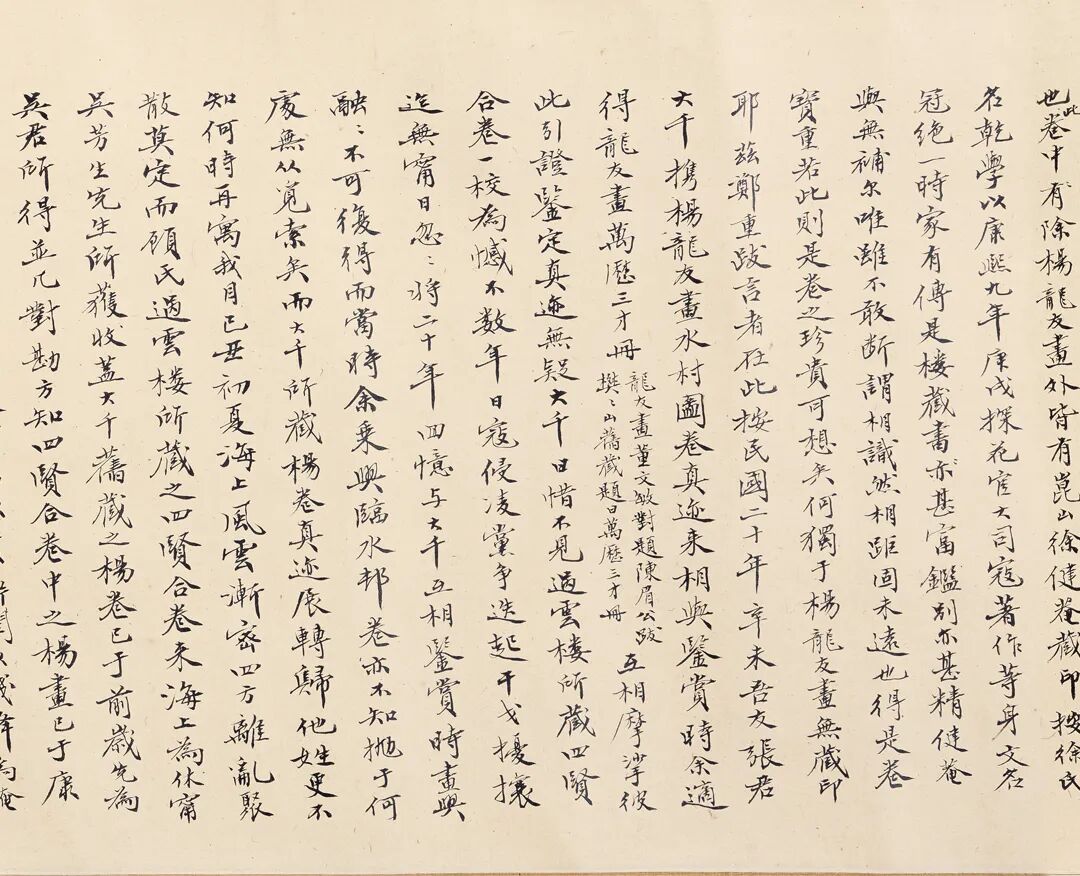 也此卷中有除楊龍友畫外皆有崑山徐健菴藏印按徐氏
名乾學以康熙九年庚戌探花官大司寇著作等身文名
冠絕一時家有傳是樓藏書亦甚富鑑別亦甚精健菴
與無補尔唯雖不敢断謂相識然相距固未遠也得是卷
寶重若此則是卷之珍貴可想矣何獨于楊龍友畫無藏印
耶茲鄭重跋言者在此按民國二十年辛未吾友張君
大千携楊龍友畫水村圖卷真迹来相與鑒賞時余適
得龍友畫萬歷三才冊
龍友畫董文敏對題陳眉公跋
樊山舊藏題曰萬歷三才冊
互相摩挲彼
此引證鑒定真迹無疑大千曰惜不見過雲樓所藏四賢
合卷一校為憾不数年日寇侵凌黨争迭起干戈擾攘
迄無甯日忽:将二十年回憶与大千互相鑒賞時畫興
融:不可復得而當時余乗興臨水邨卷亦不知抛于何
處無从覓索矣而大千所藏楊卷真迹展轉歸他姓更不
知何時再寓我目已丑初夏海上風雲漸密四方離亂聚
散莫定而顧氏過雲樓所藏之四賢合卷来海上為休甯
吳芳生先生所獲收蓋大千舊藏之楊卷已于前歲先為
吳君所得並几對勘方知四賢合卷中之楊畫已于康